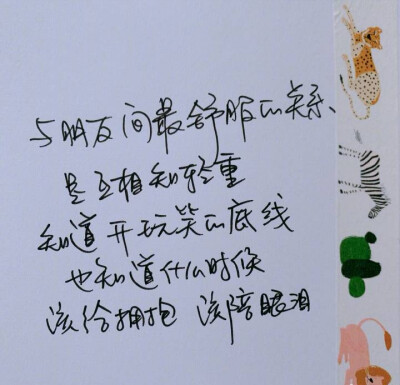 与朋友间最舒服的关系、
是互相知轻重
知道开玩笑的底线
也知道什么时候
该给拥抱 该陪眼泪